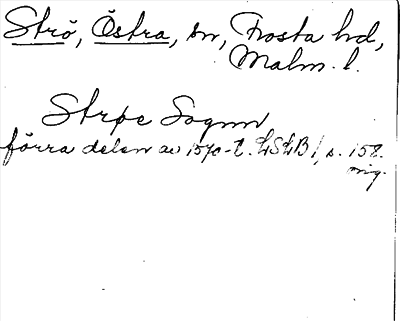 Strö, Östra, sn, Frosta hd,
Malm. l.
Strøe Sognn
förra delen av 1570-t. LSLB 1, s. 158.
orig.